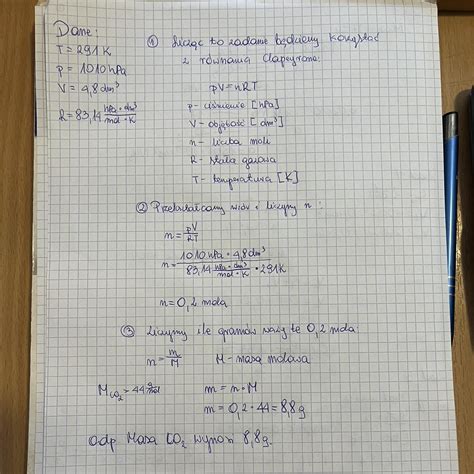 Dane:
T = 291K
p = 1010 hPa
V = 4,8 dm³
R = 83,14 hPa · dm³ / mol · K
① Licząc to zadanie będziemy korzystać
z równania Clapeyrona:
pV = nRT
p - ciśnienie [hPa]
V - objętość [dm³]
n - liczba moli
R - stała gazowa
T - temperatura [K]
② Przekształcamy wzór i liczymy n:
n = pV / RT
n = 1010 hPa · 4,8 dm³ / 83,14 hPa · dm³ / mol · K · 291K
n = 0,2 mola
③ Liczymy ile gramów waży te 0,2 mola:
n = m / M M - masa molowa
M CO₂ - 44 g/mol m = n · M
m = 0,2 · 44 = 8,8g
odp Masa CO₂ wynosi 8,8g.